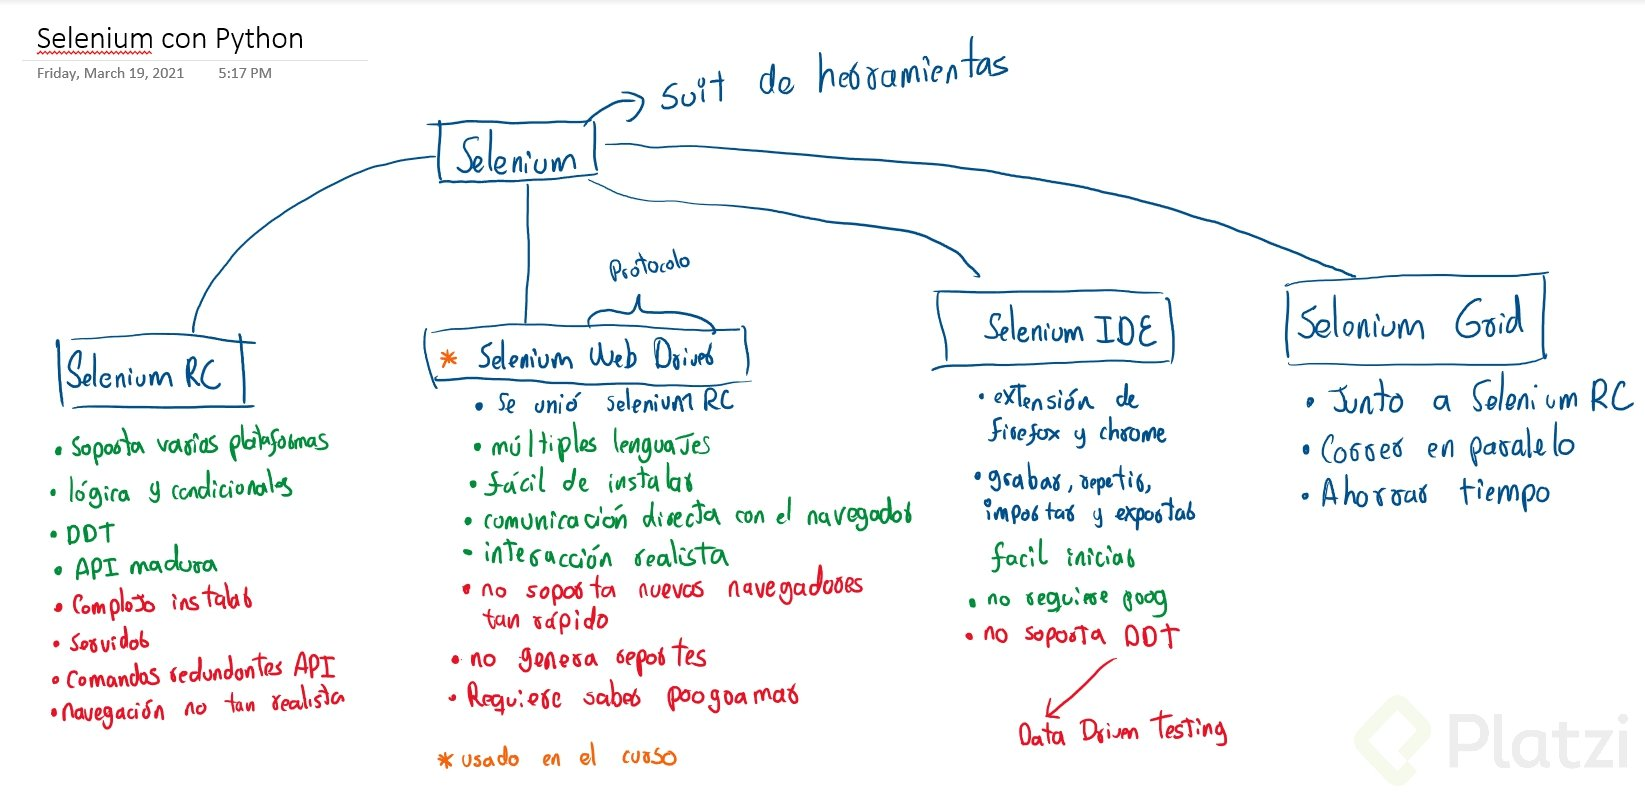 Selenium con Python
Friday, March 19, 2021 5:17 PM
Suit de herramientas
Selenium
Protocolo
Selenium RC
• Soporta varias plataformas
• lógica y condicionales
• DDT
• API madura
• Complejo instalar
• Servidor
• Comandos redundantes API
• navegación no tan realista
* Selenium Web Driver
• Se unió selenium RC
• múltiples lenguajes
• fácil de instalar
• comunicación directa con el navegador
• interacción realista
• no soporta nuevos navegadores
tan rápido
• no genera reportes
• Requiere saber programar
* usado en el curso
Selenium IDE
• extensión de
firefox y chrome
• grabar, repetir,
importar y exportar
facil iniciar
• no requiere prog
• no soporta DDT
Data Driven Testing
Selenium Grid
• Junto a Selenium RC
• Correr en paralelo
• Ahorrar tiempo
Platzi